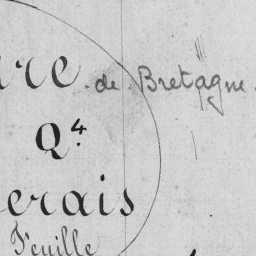 de Bretagne
Q.4
erais
Feuille